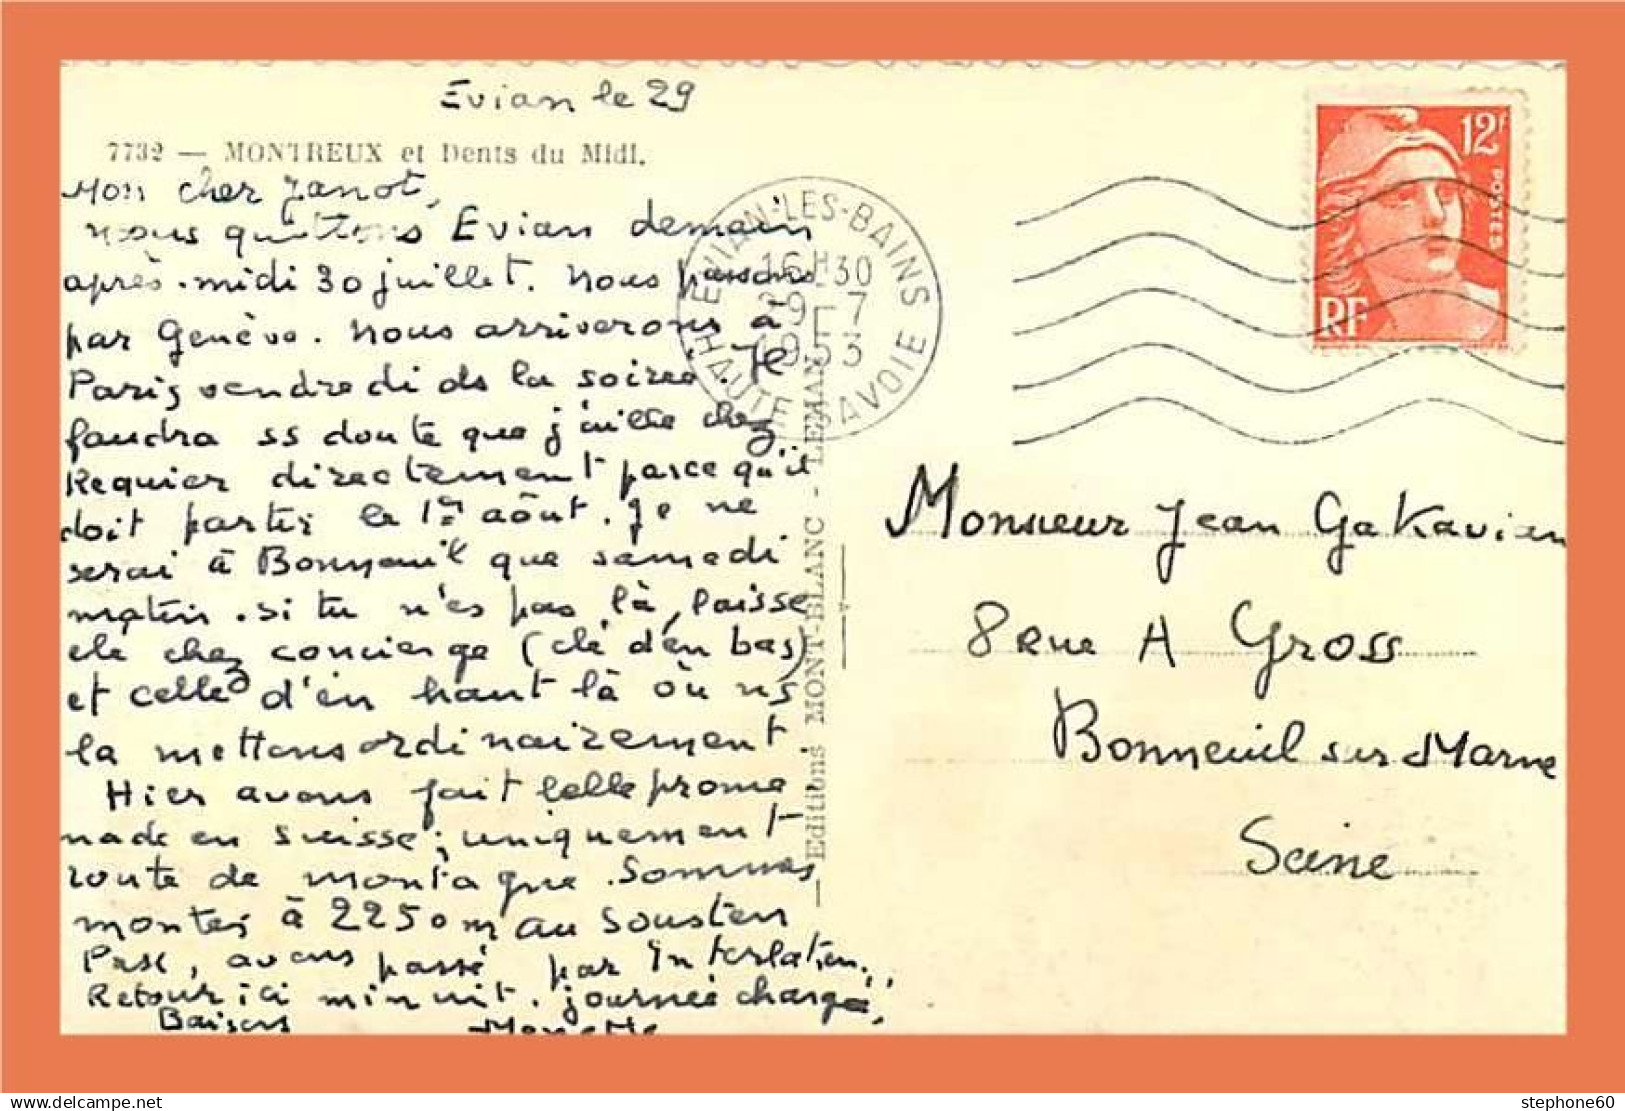 Evian le 29
7732 — MONTREUX et Dents du Midi.
Mon cher Janot,
nous quittons Evian demain
après-midi 30 juillet. Nous passons
par Genève. Nous arriverons à
Paris vendredi ds la soirée. Il
faudra ss doute que j'aille chez
Requier directement parce qu'il
doit partir le 1er aôut. Je ne
serai à Bonneuil que samedi
matin. Si tu n'es pas là, laisse
cle chez concierge (clé d'en bas)
et celle d'en haut là où ns
la mettons ordinairement.
Hier avons fait belle prome
nade en Suisse; uniquement
route de montagne. Sommes
montés à 2250m au Sousten
Pass, avons passé par Interlaken.
Retour ici minuit. journée chargée,
Baisers
EVIAN-LES-BAINS
16H30
29-7
1953
HAUTE SAVOIE
Editions MONT-BLANC - LEMAN
12F
POSTES
RF
Monsieur Jean Gakavian
8 rue A Gross
Bonneuil sur Marne
Seine
delcampe.net
stephone60